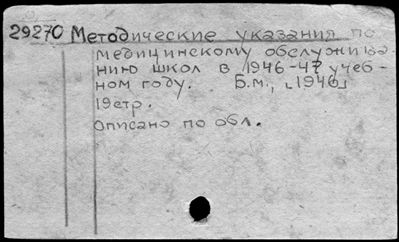 29270 Методические указания по
медицинскому обслужива-
нию школ в 1946-47 учеб-
ном году. Б.м., [1946]
19стр.
Описано по обл.